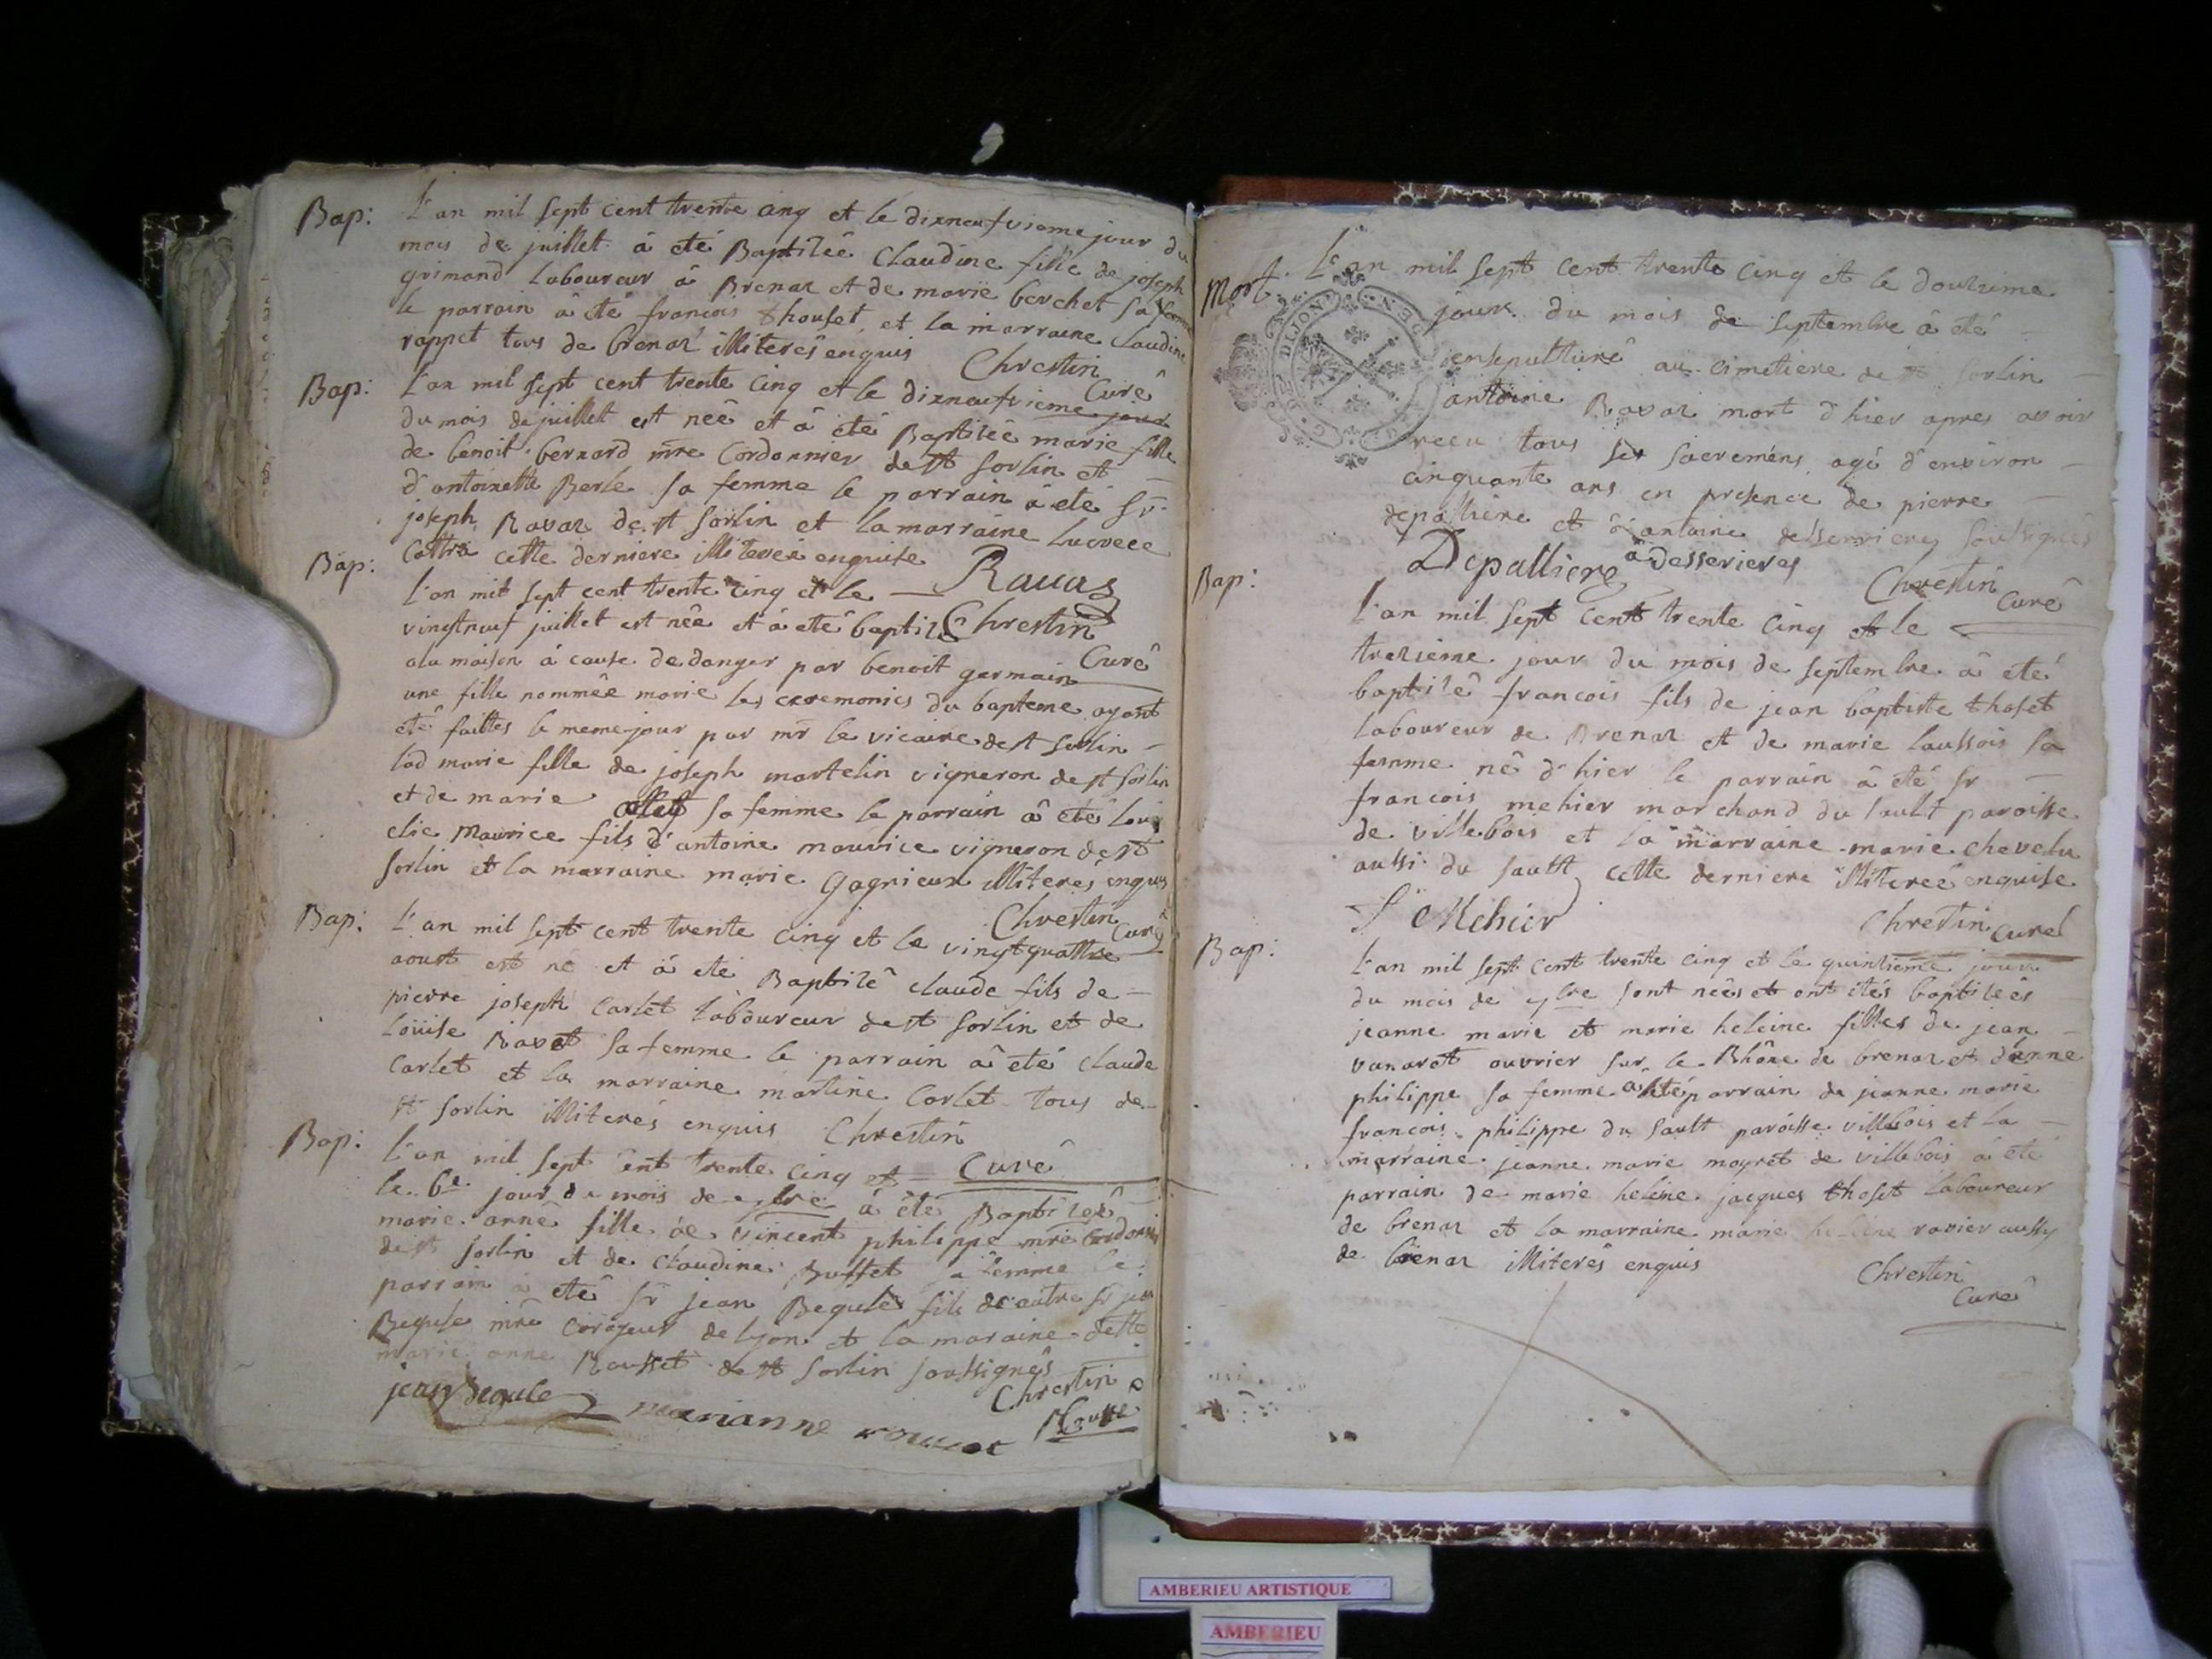 Bap: L'an mil sept cent trente cinq et le dixneufvieme jour du
mois de juillet à eté Baptisée Claudine fille de joseph
grimand laboureur à Brenaz et de marie berchet sa femme
le parrain à été francois thouset et la marraine Claudine
rappet tous de brenaz illiterés enquis Chrestin
Curé
Bap: L'an mil sept cent trente cinq et le dixneufvieme jour
du mois de juillet est neé et à été Baptisée marie fille
de benoit bernard mre Cordonnier de st sorlin et
d'antoinette Berle sa femme le parrain à eté sr
joseph Ravaz de st sorlin et la marraine Lucrece
cette derniere illiterée enquise
Ravaz
Chrestin
Curé
Bap: L'an mil sept cent trente cinq et le
vingtneuf juillet est née et à eté baptisé
a la maison à cause de danger par benoit germain
une fille nommée marie les ceremonies du bapteme ayant
eté faittes le meme jour par mr le vicaire de st sorlin
lad marie fille de joseph martelin vigneron de st sorlin
et de marie sa femme le parrain à eté Louis
elie Maurice fils d'antoine maurice vigneron de st
sorlin et la marraine marie Gagnieux illiteres enquis
Chrestin Curé
Bap: L'an mil sept cent trente cinq et le vingtquattre
aoust est né et à eté Baptisé claude fils de
pierre joseph Carlet laboureur de st sorlin et de
Loüise Ravet sa femme le parrain à eté claude
Carlet et la marraine martine Carlet tous de
st sorlin illiterés enquis Chrestin
Curé
Bap: L'an mil sept cent trente cinq et
le 6e jour du mois de 7bre à été Baptisée
marie anne fille de vincent philippe mre Cordonnier
de st sorlin et de Claudine Buffet sa femme le
parrain à eté sr jean Begule fils de autre sr jean
Begule mre de lyon et la maraine dette
marie anne Rousset de st sorlin soussignés
Chrestin
Curé
jean Begule marianne rousset
Mort. L'an mil sept cent trente cinq et le douzieme
jour du mois de septembre à eté
ensepulturé au cimetiere de st sorlin
antoine Ravaz mort d'hier apres avoir
recu tous ses sacremens agé d'environ
cinquante ans en presence de pierre
depalliere et d'antoine desserrieres soussignés
GEN · DIJON
Depalliere a desserieres
Chrestin Curé
Bap: L'an mil sept cent trente cinq et le
trezieme jour du mois de septembre à eté
baptisé francois fils de jean baptiste thoset
laboureur de Brenaz et de marie laussois sa
femme né d'hier le parrain à eté sr
francois mehier marchand du sault paroisse
de villebois et la marraine marie chevelu
aussi du sault cette derniere illiterée enquise
f Mehier
Chrestin curé
Bap: L'an mil sept cent trente cinq et le quinzieme jour
du mois de 7bre sont neés et ont etés baptisées
jeanne marie et marie heleine filles de jean
vanaret ouvrier sur le Rhône de brenaz et d'anne
philippe sa femme a eté parrain de jeanne marie
francois philippe du sault paroisse villebois et la
marraine jeanne marie moyret de villebois à eté
parrain de marie heleine jacques thoset laboureur
de brenaz et la marraine marie heleine ravier aussy
de brenaz illiterés enquis
Chrestin
Curé
AMBERIEU ARTISTIQUE
AMBERIEU